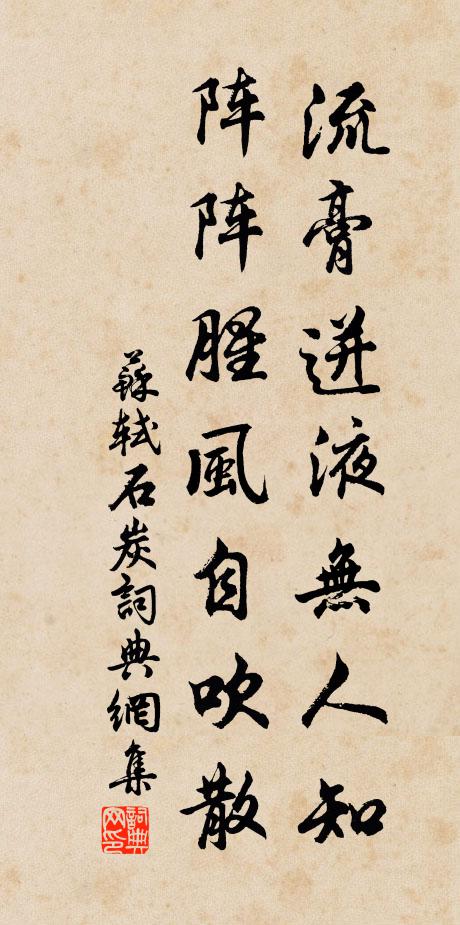 流膏迸液無人知
阵阵腥風自吹散
蘇轼石炭詞典網集
詞典
网印